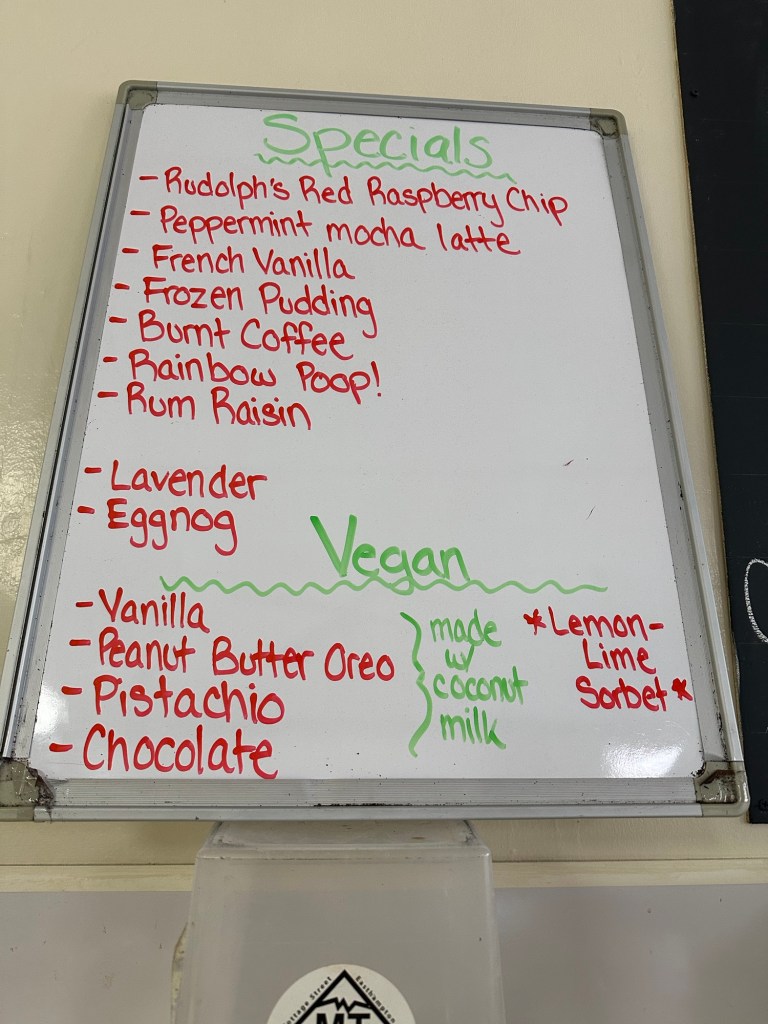 Specials
- Rudolph's Red Raspberry Chip
- Peppermint mocha latte
- French Vanilla
- Frozen Pudding
- Burnt Coffee
- Rainbow Poop!
- Rum Raisin
- Lavender
- Eggnog
Vegan
- Vanilla
- Peanut Butter Oreo
- Pistachio
- Chocolate
made
w/
coconut
milk
*Lemon-
Lime
Sorbet*
Cottage Street
Easthampton
MT